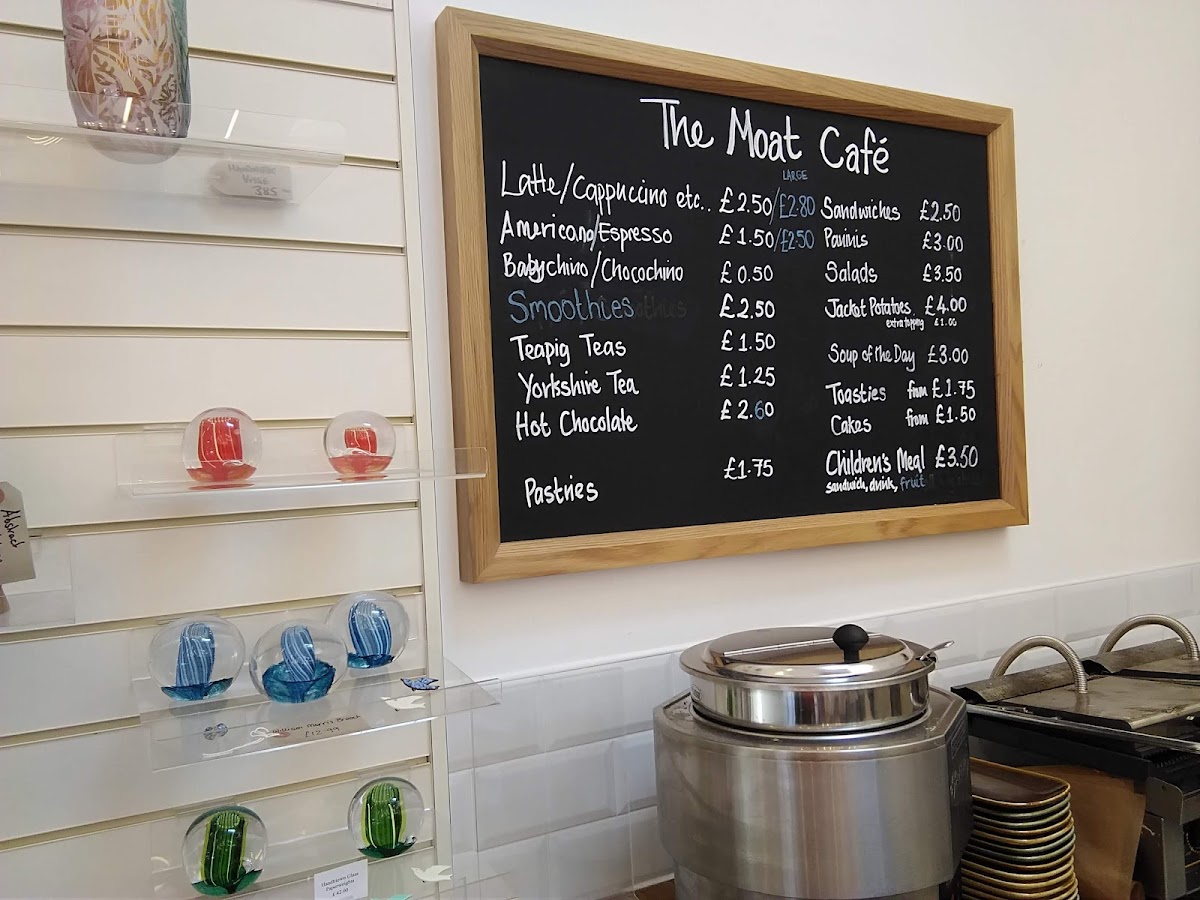 The Moat Café
LARGE
Latte/Cappuccino etc.. £2.50/£2.80
Americano/Espresso £1.50/£2.50
Babychino/Chocochino £0.50
Smoothies £2.50
Teapig Teas £1.50
Yorkshire Tea £1.25
Hot Chocolate £2.60
Pastries £1.75
Sandwiches £2.50
Paninis £3.00
Salads £3.50
Jacket Potatoes. £4.00
extra topping £1.00
Soup of the Day £3.00
Toasties from £1.75
Cakes from £1.50
Children's Meal £3.50
sandwich, drink, fruit
Handmade
Vase
385
Abstract
William Morris Brooch
£12.99
Handblown Glass
Paperweights
£42.00